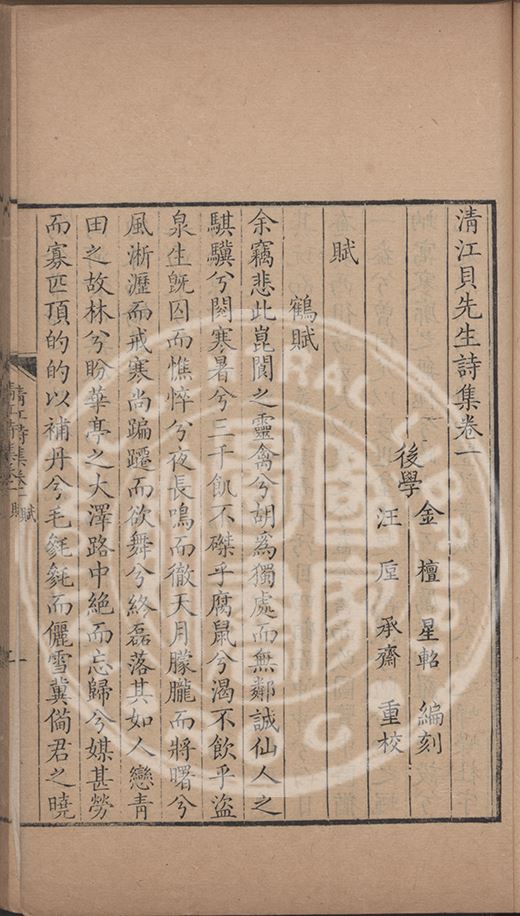 清江貝先生詩集卷一
後學
金檀星軺編刻
汪厔承齋重校
賦
鶴賦
余竊悲此崑閬之靈禽兮胡為獨處而無鄰誠仙人之
騏驥兮閱寒暑兮三千飢不磔乎腐鼠兮渴不飲乎盜
泉生旣囚而憔悴兮夜長鳴而徹天月朦朧而將曙兮
風淅瀝而戒寒尚蹁躚而欲舞兮終磊落其如人戀青
田之故林兮盼華亭之大澤路中絶而忘歸兮媒甚勞
而寡匹頂的的以補丹兮毛毿毿而儷雪冀僃君之曉
清江詩集卷一
賦
一